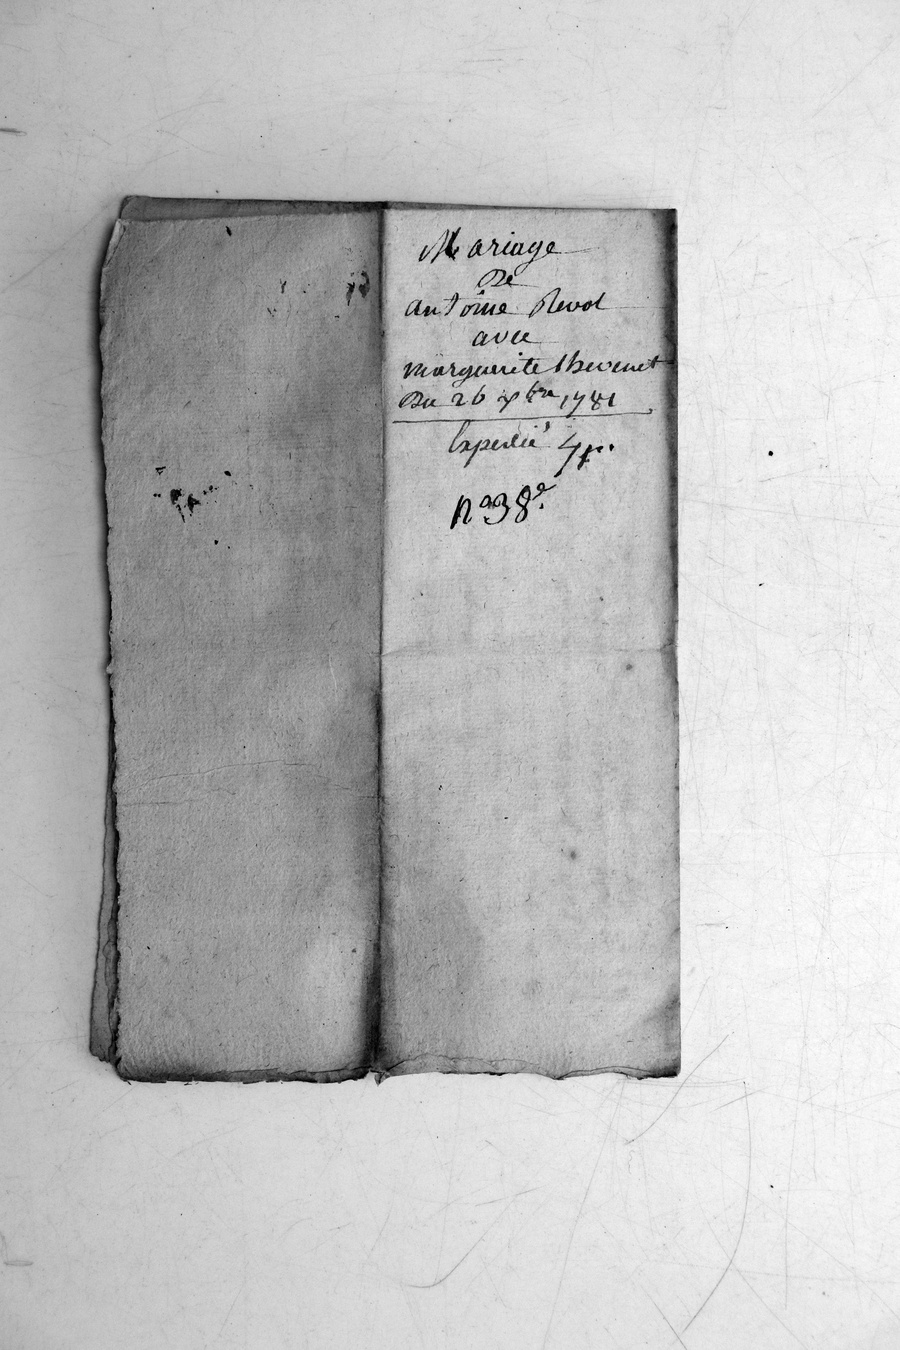 Mariage
De
antoine Revol
avec
marguerite thevenet
Du 26 xbre 1781
Expedié
n° 38e.